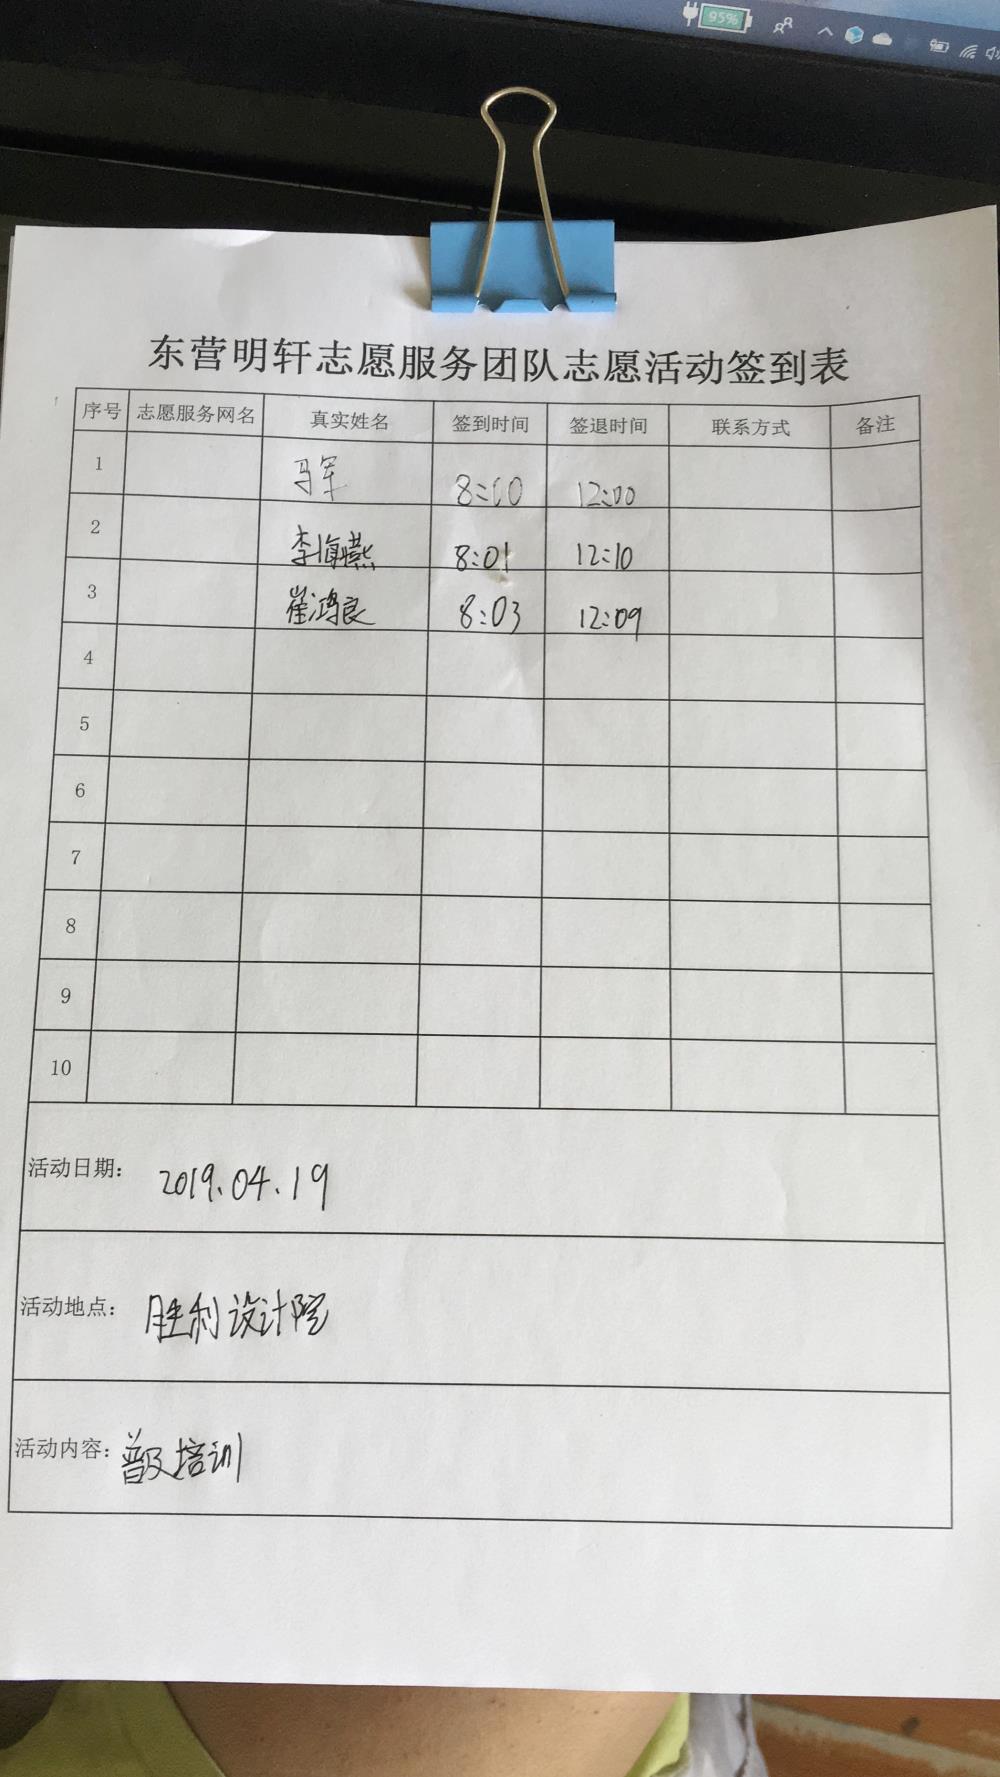 95%
东营明轩志愿服务团队志愿活动签到表
序号 志愿服务网名 真实姓名 签到时间 签退时间 联系方式 备注
1 马军 8:10 12:00
2 李海燕 8:01 12:10
3 崔鸿良 8:03 12:09
4
5
6
7
8
9
10
活动日期: 2019.04.19
活动地点: 胜利设计院
活动内容: 普及培训